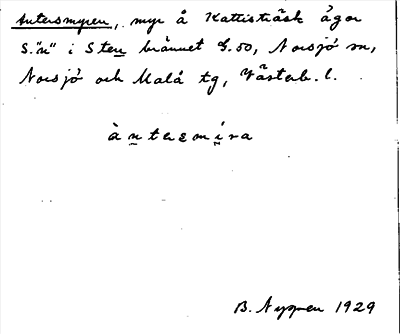 Antersmyren, myr å Kattisträsk ägor
S."n" i Stenbrännet G.50, Norsjö sn,
Norsjö och Malå tg, Västerb. l.
àntersmíra
B. Nyman 1929